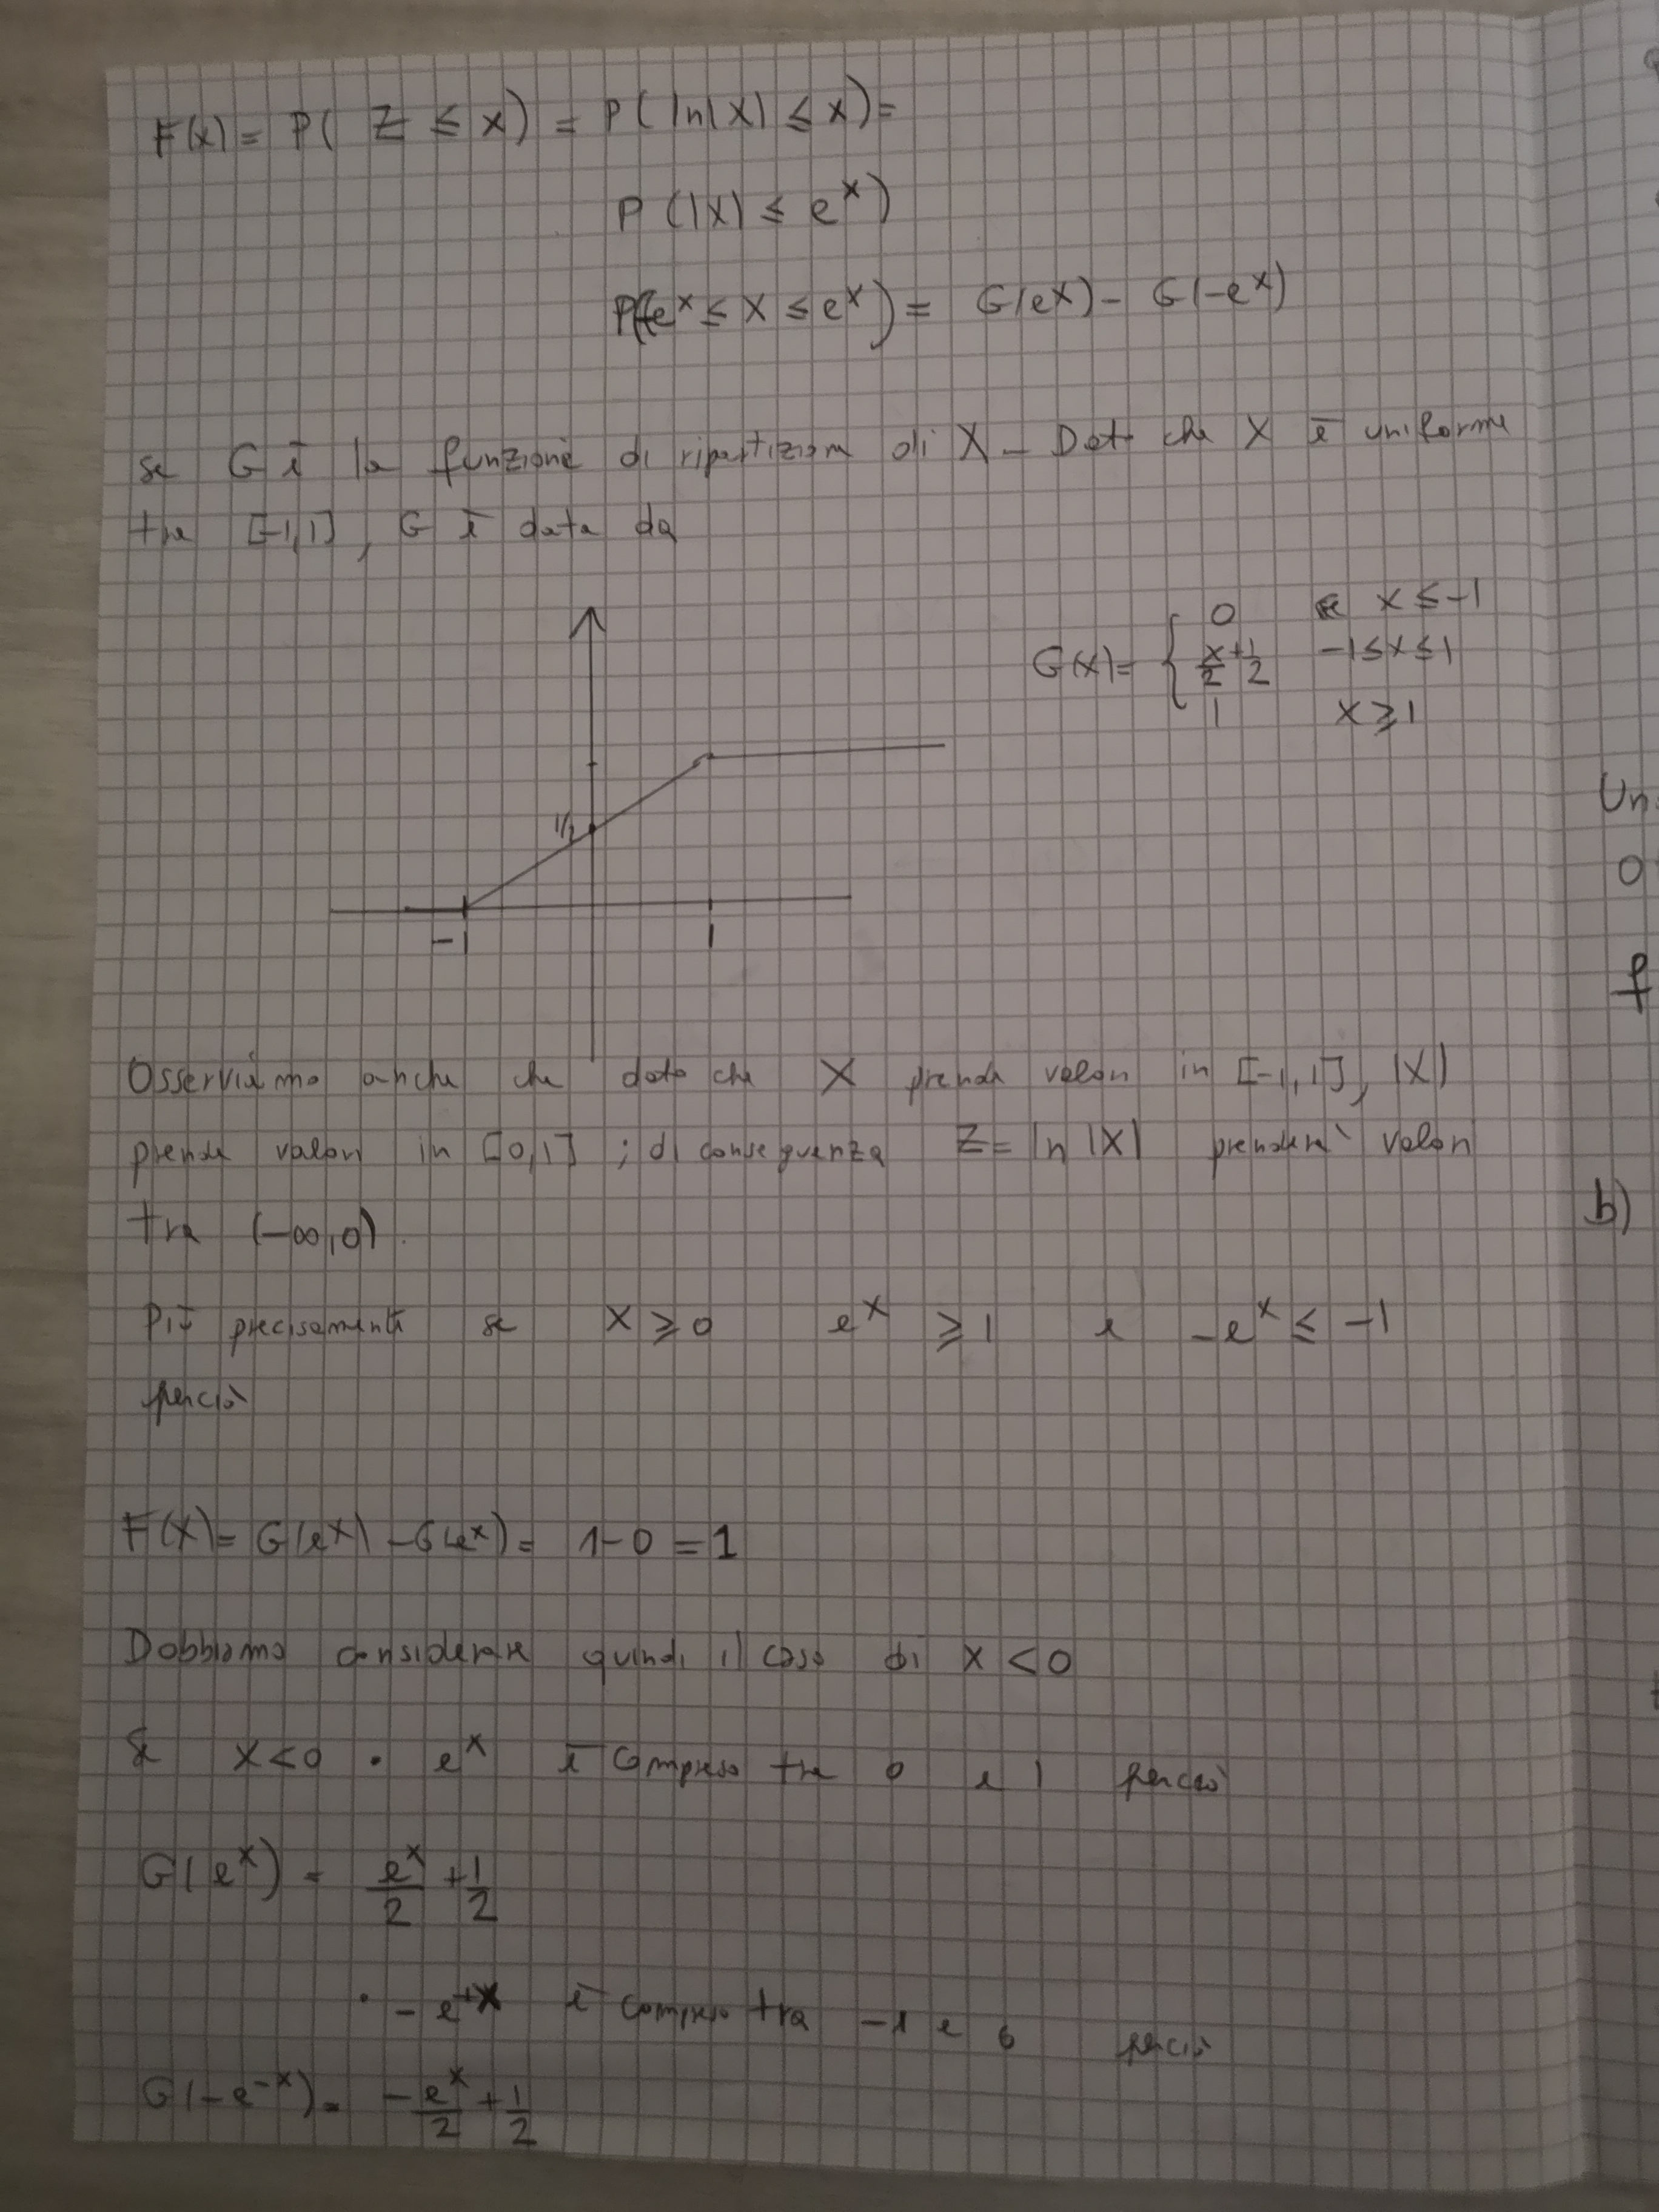 F(x) = P( Z ≤ x) = P( ln|X| ≤ x) =
P (|X| ≤ e^x)
P(-e^x ≤ X ≤ e^x) = G(e^x) - G(-e^x)
se G è la funzione di ripartizion di X - Dato che X è uniforme
tra [-1,1], G è data da
G(x) = { 0 se x ≤ -1
x/2 + 1/2 -1 ≤ x ≤ 1
1 x ≥ 1
1/2
-1 1
Osserviamo anche che dato che X prende valori in [-1,1], |X|
prende valori in [0,1] ; di conseguenza Z = ln |X| prenderà valori
tra (-∞,0).
Più precisamente se x ≥ 0 e^x ≥ 1 e -e^x ≤ -1
perciò
F(x) = G(e^x) - G(-e^x) = 1-0 = 1
Dobbiamo considerare quindi il caso di x < 0
Se x < 0 • e^x è compreso tra 0 e 1 perciò
G(e^x) = e^x/2 + 1/2
• -e^+x è compreso tra -1 e 0 perciò
G(-e^-x) = -e^x/2 + 1/2
Un
0
f
b)